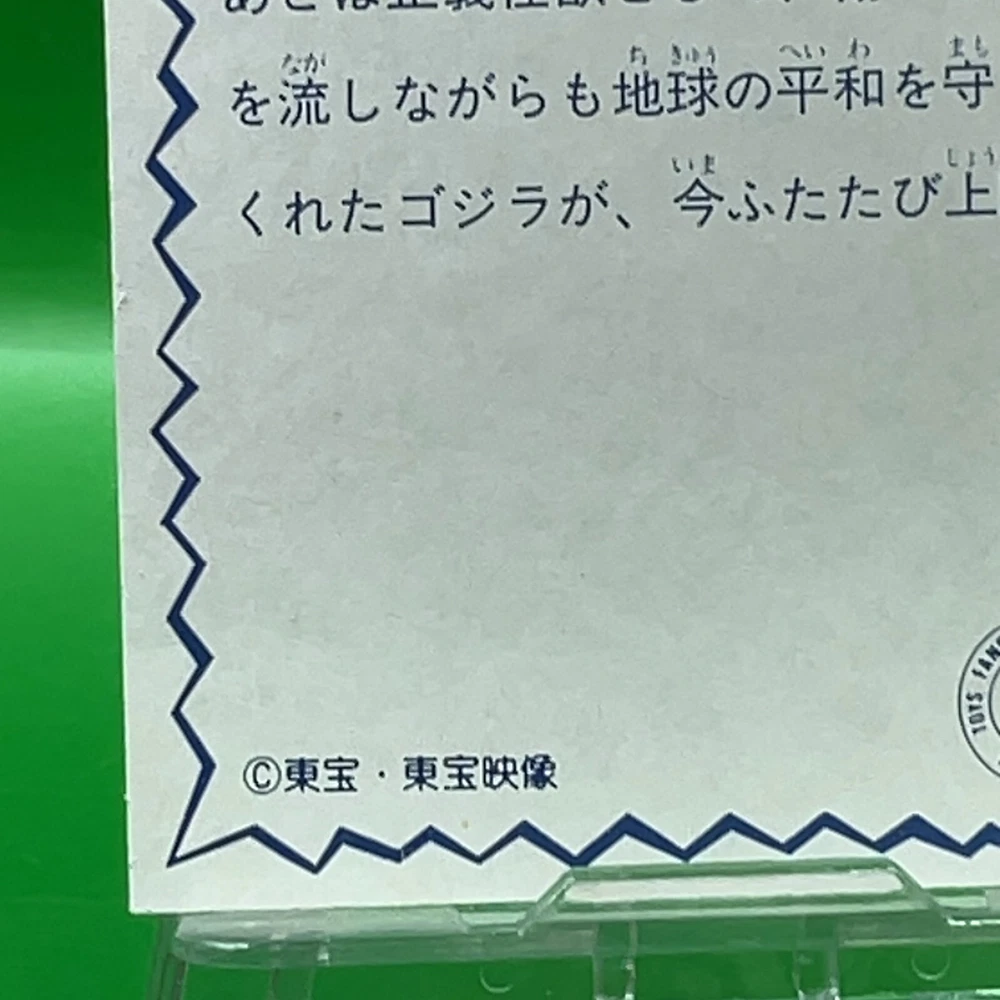 を流しながらも地球の平和を守
くれたゴジラが、今ふたたび上
©東宝・東宝映像
TOYS